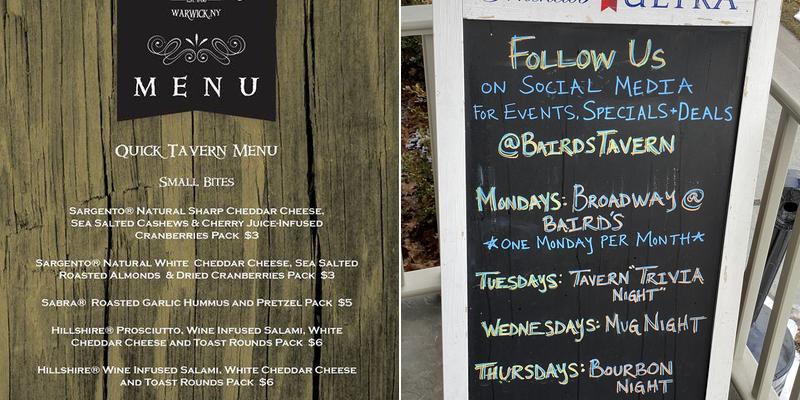 WARWICK, NY
MENU
QUICK TAVERN MENU
SMALL BITES
SARGENTO® NATURAL SHARP CHEDDAR CHEESE,
SEA SALTED CASHEWS & CHERRY JUICE-INFUSED
CRANBERRIES PACK $3
SARGENTO® NATURAL WHITE CHEDDAR CHEESE, SEA SALTED
ROASTED ALMONDS & DRIED CRANBERRIES PACK $3
SABRA® ROASTED GARLIC HUMMUS AND PRETZEL PACK $5
HILLSHIRE® PROSCIUTTO, WINE INFUSED SALAMI, WHITE
CHEDDAR CHEESE AND TOAST ROUNDS PACK $6
HILLSHIRE® WINE INFUSED SALAMI, WHITE CHEDDAR CHEESE
AND TOAST ROUNDS PACK $6
ULTRA
FOLLOW US
ON SOCIAL MEDIA
FOR EVENTS, SPECIALS + DEALS
@BAIRDSTAVERN
MONDAYS: BROADWAY @
BAIRD'S
*ONE MONDAY PER MONTH*
TUESDAYS: TAVERN "TRIVIA
NIGHT"
WEDNESDAYS: MUG NIGHT
THURSDAYS: BOURBON
NIGHT